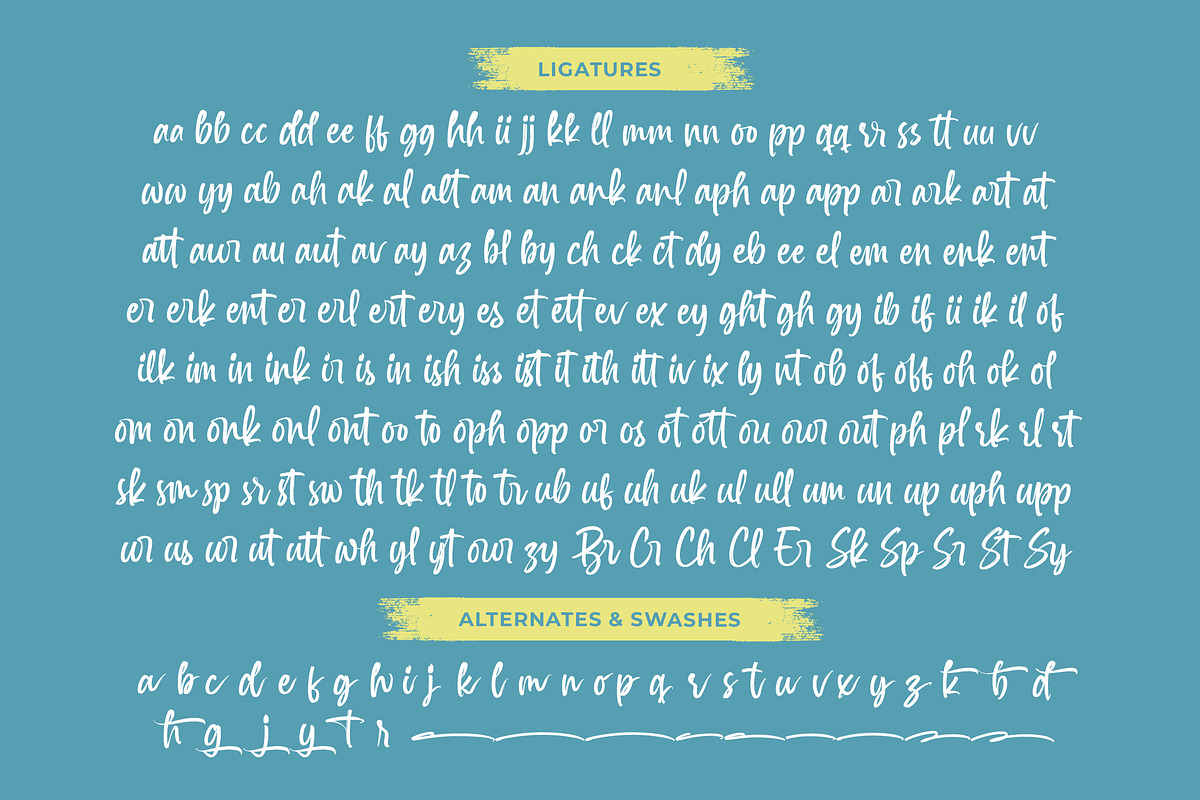 LIGATURES
aa bb cc dd ee ff gg hh ii jj kk ll mm nn oo pp qq rr ss tt uu vv
ww yy ab ah ak al alt am an ank anl aph ap app ar ark art at
att aur au aut av ay az bl by ch ck ct dy eb ee el em en enk ent
er erk ent er erl ert ery es et ett ev ex ey ght gh gy ib if ii ik il of
ilk im in ink ir is in ish iss ist it ith itt iv ix ly nt ob of off oh ok ol
om on onk onl ont oo to oph opp or os ot ott ou our out ph pl rk rl rt
sk sm sp sr st sw th tk tl to tr ub uf uh uk ul ull um un up uph upp
ur us ur ut utt wh yl yt our zy Br Cr Ch Cl Er Sk Sp Sr St Sy
ALTERNATES & SWASHES
a b c d e f g h i j k l m n o p q r s t u v x y z k b d
h g j y t r